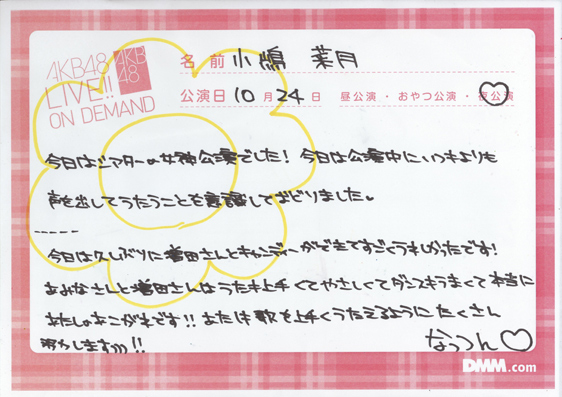 AKB48
LIVE!!
ON DEMAND
AKB
48
名前 小嶋 菜月
公演日 10月24日 昼公演・おやつ公演・夜公演
今日はシアターの女神公演でした! 今日は公演中にいつもよりも
声を出してうたうことを意識しておどりました。
今日は久しぶりに増田さんとキャンディーができてすごくうれしかったです!
あみなさんと増田さんはうたも上手くてやさしくてダンスもうまくて本当に
あたしのあこがれです!! あたしも歌を上手くうたえるようにたくさん
努力します!!
なっつん♡
DMM.com